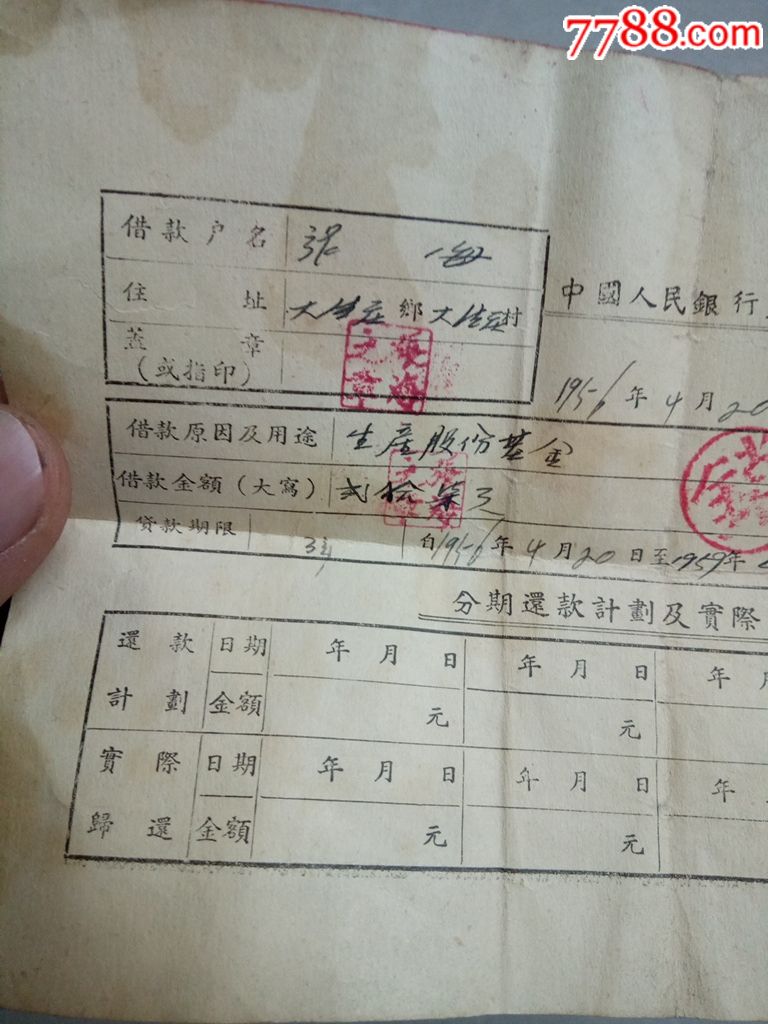 7788.com
借款户名 张 海
住址 大生庄鄉大生庄村
中國人民銀行
蓋章
(或指印)
張海之章
1956年4月20
借款原因及用途 生産股份基金
借款金額(大寫) 弍拾柒元
貸款期限 3年 自1956年4月20日至1959年
分期還款計劃及實際
還款 日期 年月日 年月日 年月
計劃 金額 元 元
實際 日期 年月日 年月日 年
歸還 金額 元 元